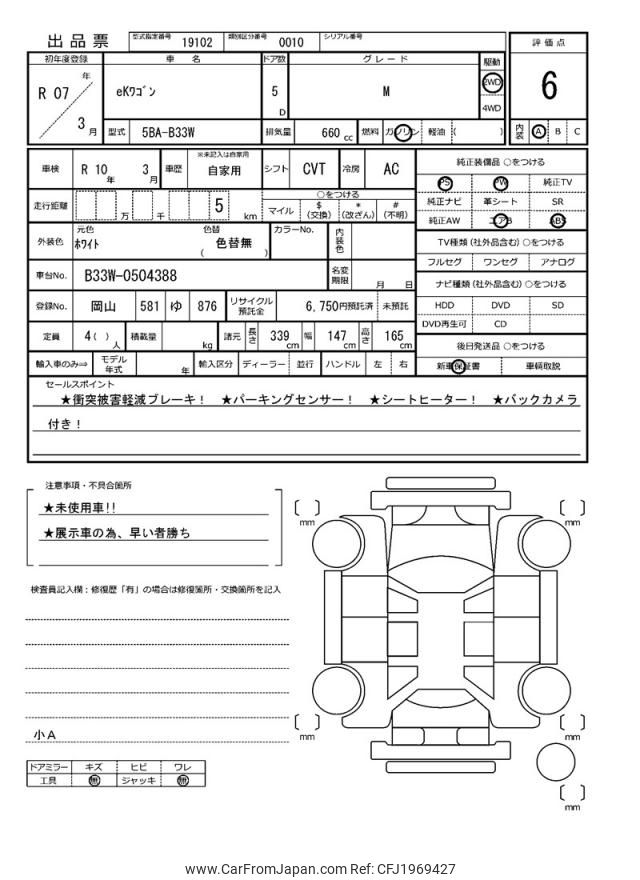 出品票 型式指定番号 19102 類別区分番号 0010 シリアル番号
初年度登録 車 名 ドア数 グレード 駆動 評価点
R 07 年 3 月 eKワゴン 5 D M 2WD 4WD 6
型式 5BA-B33W 排気量 660 cc 燃料 ガソリン 軽油 ( ) 内装 A B C
車検 R 10 年 3 月 車歴 ※未記入は自家用 自家用 シフト CVT 冷房 AC 純正装備品 ○をつける
PS PW 純正TV
走行距離 万 千 5 km ○をつける 純正ナビ 革シート SR
マイル $ (交換) * (改ざん) # (不明) 純正AW エアB ABS
外装色 元色 ホワイト 色替 色替無 ( ) カラーNo. 内装色 TV種類 (社外品含む) ○をつける
フルセグ ワンセグ アナログ
車台No. B33W-0504388 名変期限 月 日 ナビ種類 (社外品含む) ○をつける
登録No. 岡山 581 ゆ 876 リサイクル預託金 6,750円預託済 未預託 HDD DVD SD
DVD再生可 CD
定員 4( ) 人 積載量 kg 諸元 長さ 339 cm 幅 147 cm 高さ 165 cm 後日発送品 ○をつける
輸入車のみ⇒ モデル年式 年 輸入区分 ディーラー 並行 ハンドル 左 右 新車保証書 車輌取説
セールスポイント
★衝突被害軽減ブレーキ! ★パーキングセンサー! ★シートヒーター! ★バックカメラ
付き!
注意事項・不具合箇所
★未使用車!!
★展示車の為、早い者勝ち
検査員記入欄:修復歴「有」の場合は修復箇所・交換箇所を記入
小A
ドアミラー キズ ヒビ ワレ
工具 無 ジャッキ 無
mm mm
mm mm
mm
www.CarFromJapan.com Ref: CFJ1969427